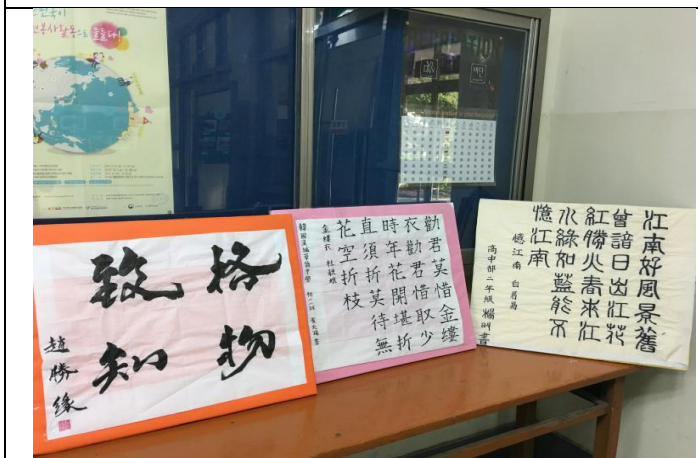 봉사활동으로 물들다!
格物
致知
趙勝緣
勸君莫惜金縷
衣勸君惜取少
時年花開堪折
直須折莫待無
花空折枝
金縷衣 杜秋娘
韓國漢城華僑中學
江南好風景舊
曾諳日出江花
紅勝火春來江
水綠如藍能不
憶江南
憶江南 白居易
高中部二年級 楊